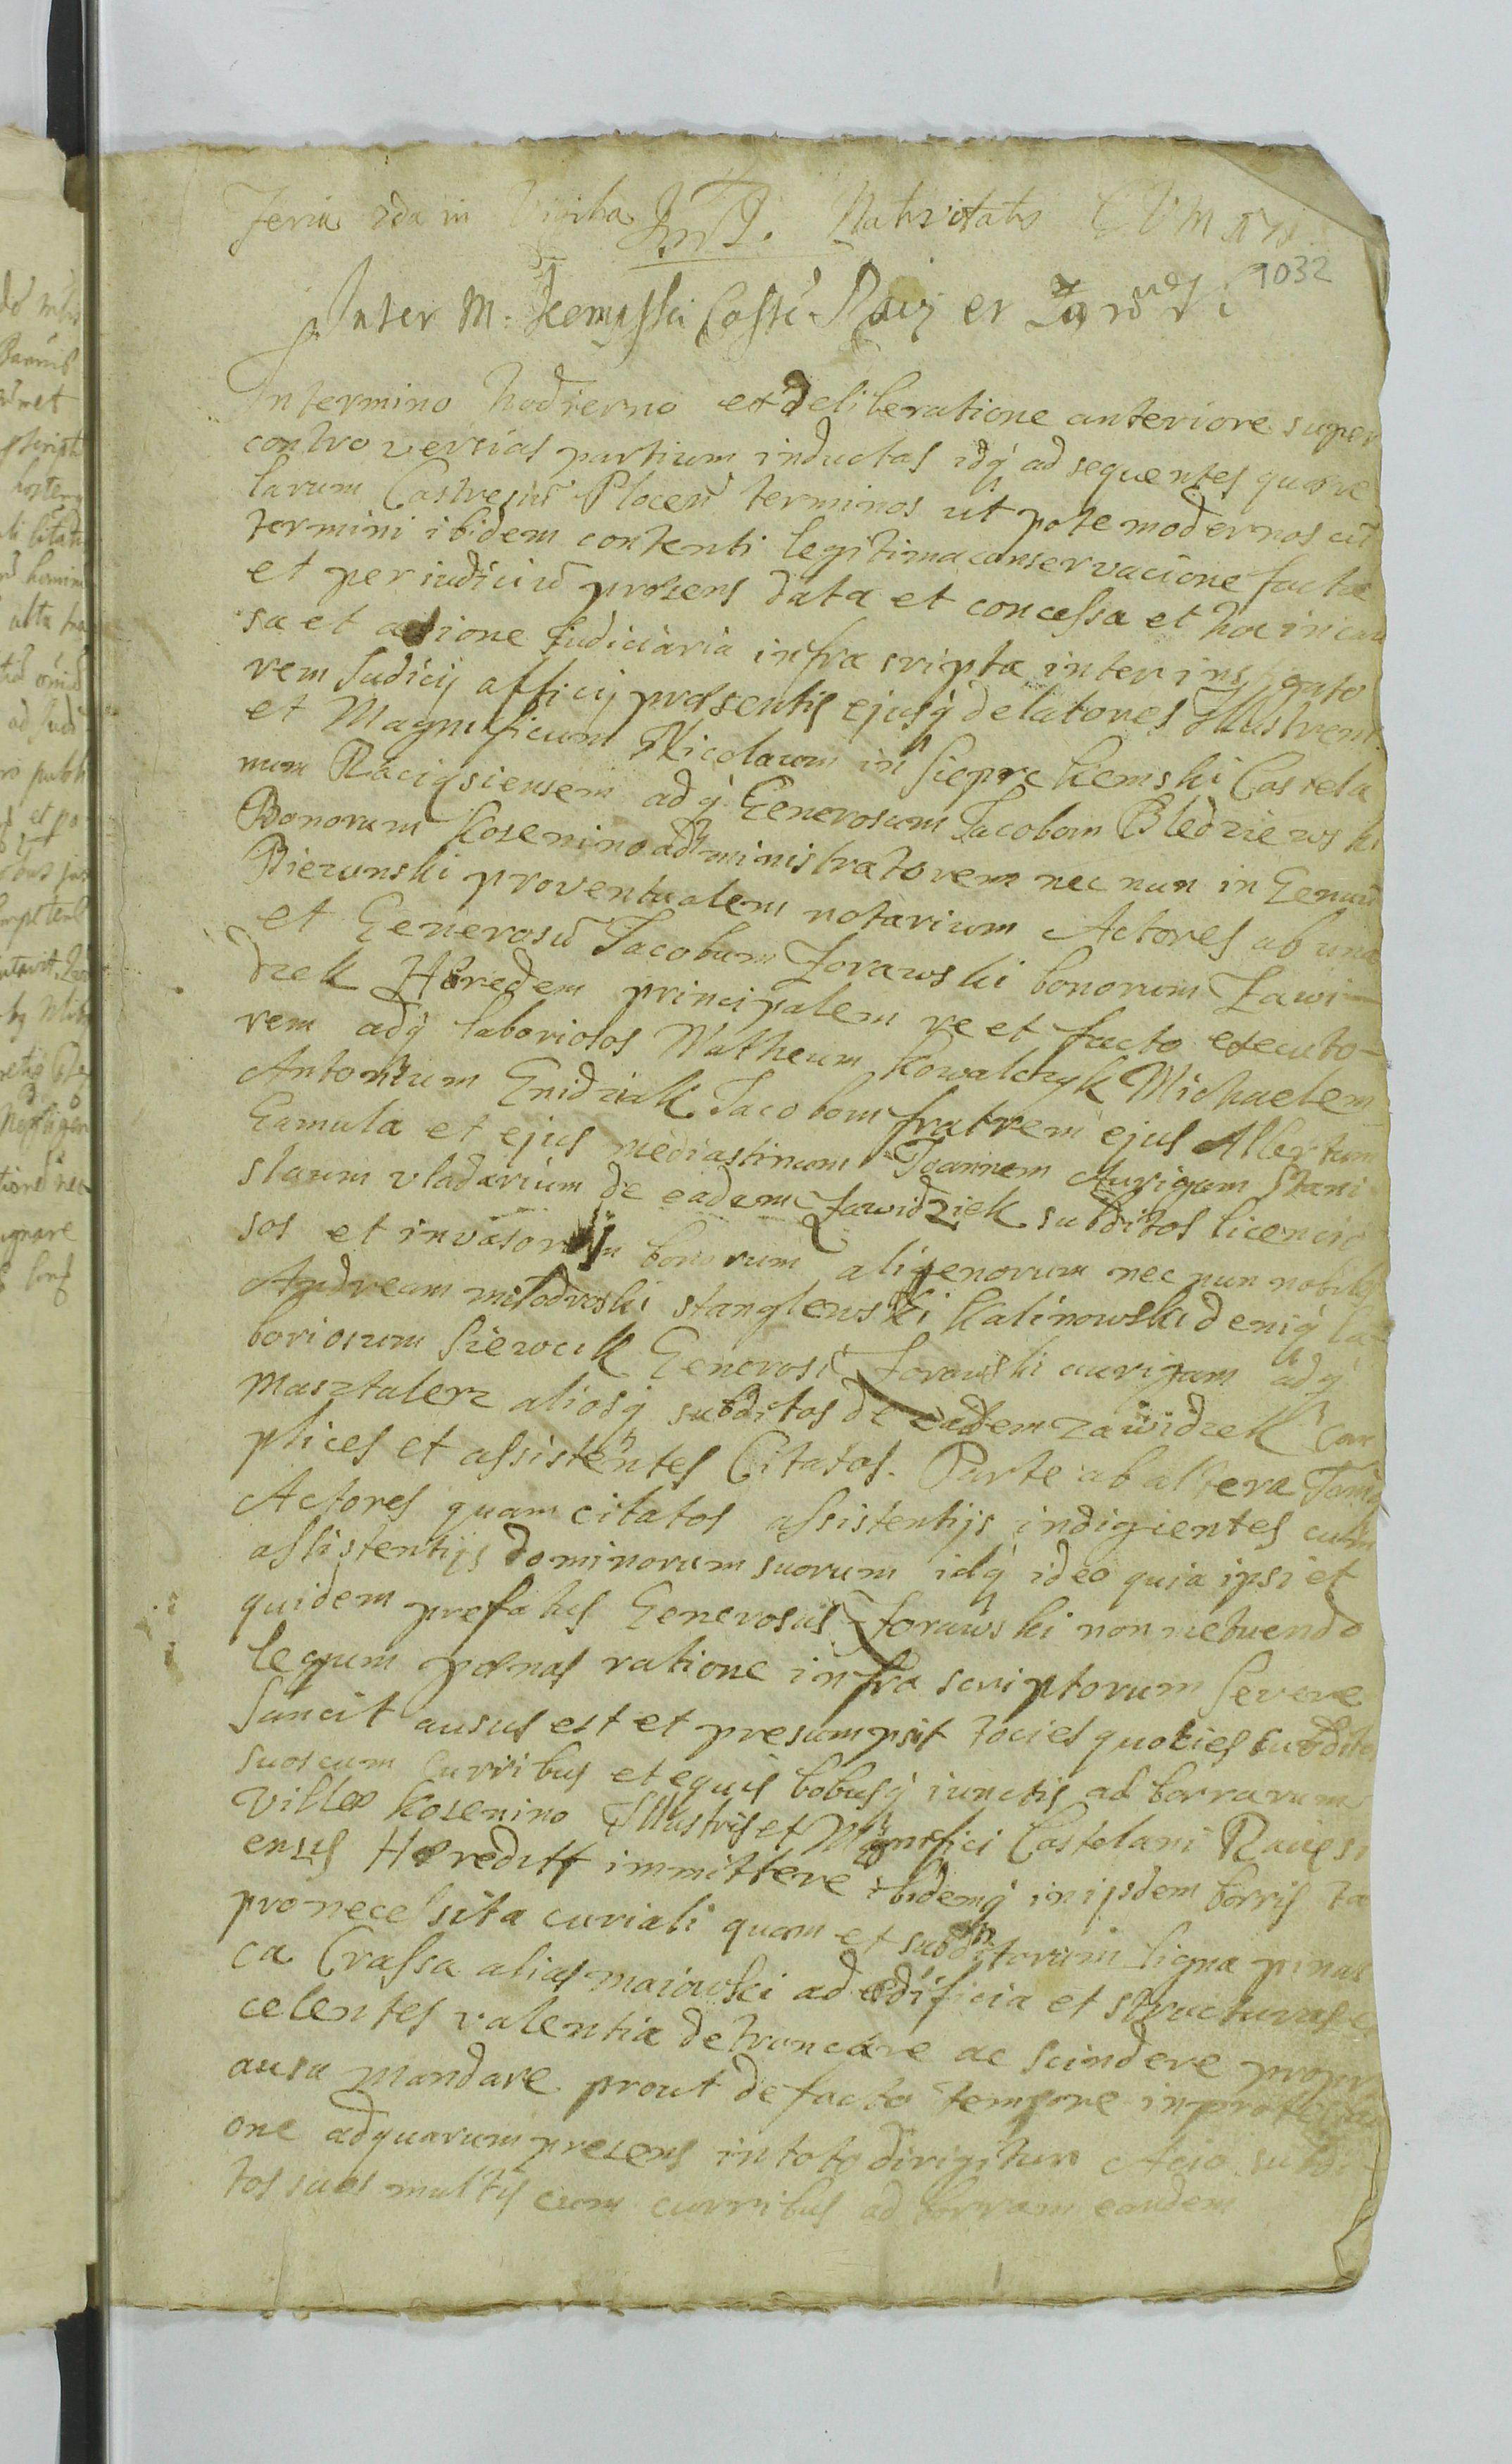 Feria 2da in Vigilia Nativitatis
1032
Inter M. Kempski et
In termino hodierno ex deliberatione anteriore super
controversias partium inductas idq ad sequentes quære
larum Castresiū Plocen terminos ut pote modernos cū
termini ibidem contenti legitima conservacione facta
et per iudiciū præsens data et concessa et hoc in cau
sa et actione Judiciaria infra scripta inter instigato
rem Judicij officij præsentis ejusq delatores Illustrem
et Magnificum Nicolaum in Sieprc Kemski Castela
num Raciąsiensem adq Generosum Jacobum Blędzewski
Bonorum Kosenino administratorem nec nun in
Bierunski proventualem notarium Actores ab una
et Generosū Jacobum Zorawski bonorum Zawi-
dzek Hæredem principalem re et facto executo-
rem adq laboriosos Matheum Kowalczyk Michaelem
Antonium Gnidziak Jacobum fratrem ejus Albertum
Gamula et ejus mediastinum Joannem Aurigam Stani
slaum vladarium de eadem Zawidziek subditos licencio
sos et invasorum bonorum aligenorum nec nun nobiles
Andream milodroski stanglewski Kalinowski deniq la-
boriosum Siewcik Generosi Zorawski aurigam adq
Masztalerz aliosq subditos de eadem Zawidzek Com
plices et assistentes Citatos. Parte ab altera Tamq
Actores quam citatos assistentijs indigientes cum
assistentijs dominorum suorum idq ideo quia ipsi et
quidem prefatus Generosus Zorawski non metuendo
legum pænas ratione infra scriptorum Severe
Sancit ausus est et presumpsit tocies quoties subditos
suos cum Curribus et equis bobusq iunctis ad borrarum
Villæ Kosenino Illustris et Magnifici Castelani Raciąsi
ensis Hæredit immittere ibidemq in ijsdem borris ta
pro necessita curiali quam et subditorum ligna pinas
ca Crassa alias maiowki ad ædificia et structuras ex
celentes valentia detruncare ac scindere propri
ausu mandare prout de facto tempore in protestati
one adquarum presens in toto dirigitur Acio subdi-
tos suos multis cum curribus ad borram eandem